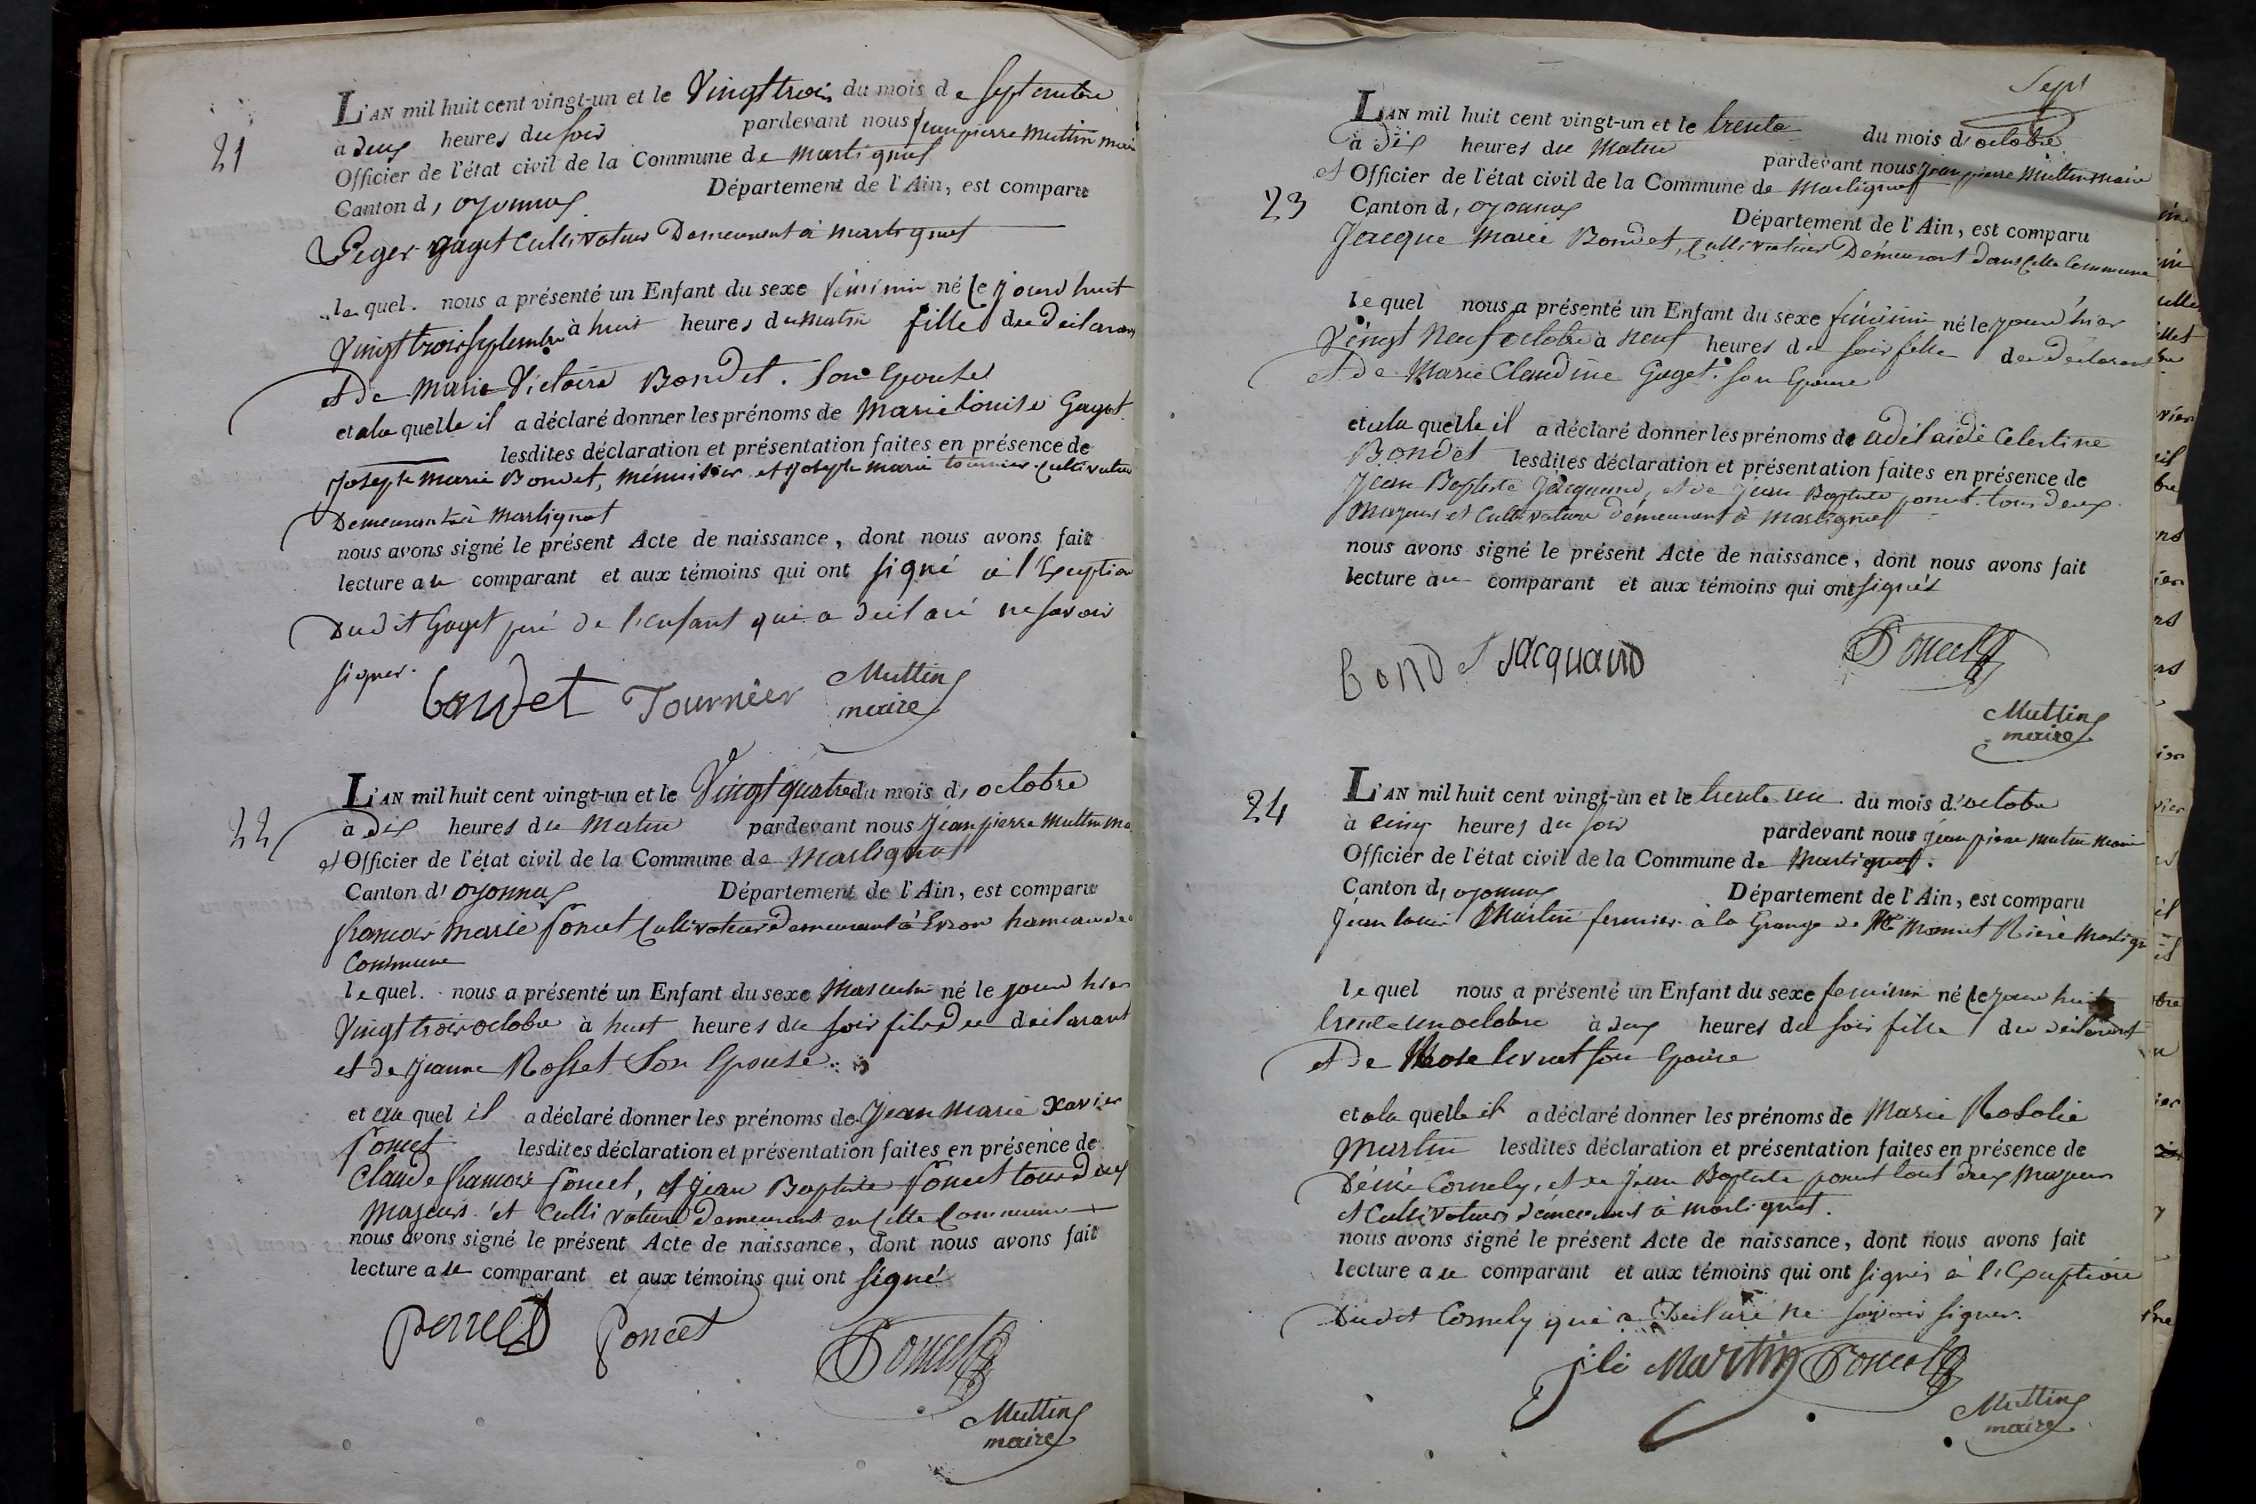 21
L'AN mil huit cent vingt-un et le Vingt trois du mois de Septembre
à deux heures du soir pardevant nous jean pierre Muttin maire
Officier de l'état civil de la Commune de Martignat
Canton d, oyonnas Département de l'Ain, est comparu
Leger gaget Cultivateur Demeurant à martignat
le quel. nous a présenté un Enfant du sexe féminin né le jourd huit
Vingt trois septembre à huit heures du matin fille du déclarant
et De Marie Victoire Bondet. Son Epouse
et a la quelle il a déclaré donner les prénoms de Marie louise Gaget
lesdites déclaration et présentation faites en présence de
Joseph marie Bondet,ménuisier et joseph marie tournier cultivateur
Demeurant à Martignat
nous avons signé le présent Acte de naissance, dont nous avons fait
lecture au comparant et aux témoins qui ont signé à l'Exeption
Dudit Gaget peré de l'enfant qui a déclaré ne savoir
signer.
bondet Tournier Muttin
maire
22
L'AN mil huit cent vingt-un et le Vingt quatre du mois d, octobre
à Dix heures du Matin pardevant nous jean pierre Muttin ma
et Officier de l'état civil de la Commune de Martignat
Canton d' oyonnas Département de l'Ain, est comparu
francois Marie Poncet Cultivateur Demeurant à Evron hameau de
Commune
le quel. nous a présenté un Enfant du sexe Masculin né le jourd hier
Vingt trois octobre à huit heures du soir fils du déclarant
et de jeanne Rosset Son Epouse.
et au quel il a déclaré donner les prénoms de Jean Marie Xavier
Poncet lesdites déclaration et présentation faites en présence de
Claude francois Poncet, et jean Baptiste Poncet tous deux
Majeurs et Cultivateurs Demeurant en Cette Commune
nous avons signé le présent Acte de naissance, dont nous avons fait
lecture au comparant et aux témoins qui ont signé
poncet Poncet Poncet
Muttin
maire
Sept
L'AN mil huit cent vingt-un et le trente du mois d'octobre
à Dix heures du Matin pardevant nous jean pierre Muttin maire
23
et Officier de l'état civil de la Commune de Martignat
Canton d, oyonnas Département de l'Ain, est comparu
Jacque Marie Bondet, Cultivateur Demeurant dans Cette Commune
le quel nous a présenté un Enfant du sexe féminin né le jourd'hier
Vingt Neuf octobre à neuf heures du soir fille du déclarant
et de Marie Claudine Gaget son Epouse
et a la quelle il a déclaré donner les prénoms de adélaide Celestine
Bondet lesdites déclaration et présentation faites en présence de
Jean Baptiste Jacquand, et de jean Baptiste poncet tous deux
Majeurs et Cultivateurs démeurant à Martignat
nous avons signé le présent Acte de naissance, dont nous avons fait
lecture au comparant et aux témoins qui ont signés
bondet Jacquand Poncet
Muttin
maire
24
L'AN mil huit cent vingt-un et le trente un du mois d'octobre
à Cinq heures du soir pardevant nous jean pierre mutin maire
Officier de l'état civil de la Commune de Martignat.
Canton d, oyonnas Département de l'Ain, est comparu
Jean louis Martin fermier à la Grange de Mr Monnet Rière Martign
le quel nous a présenté un Enfant du sexe feminin né le jour huit
trente un octobre à deux heures du soir fille du déclarant
et De Rose levrat son Epouse
et a la quelle il a déclaré donner les prénoms de Marie Rosalie
Martin lesdites déclaration et présentation faites en présence de
Déné Cornely, et de jean Baptiste poncet tout deux Majeurs
et Cultivateurs démeurant à martignat.
nous avons signé le présent Acte de naissance, dont nous avons fait
lecture au comparant et aux témoins qui ont signés à l'Exeption
Dudit Cornely qui a Déclaré ne savoir signer.
j li Martin Poncet
Muttin
maire